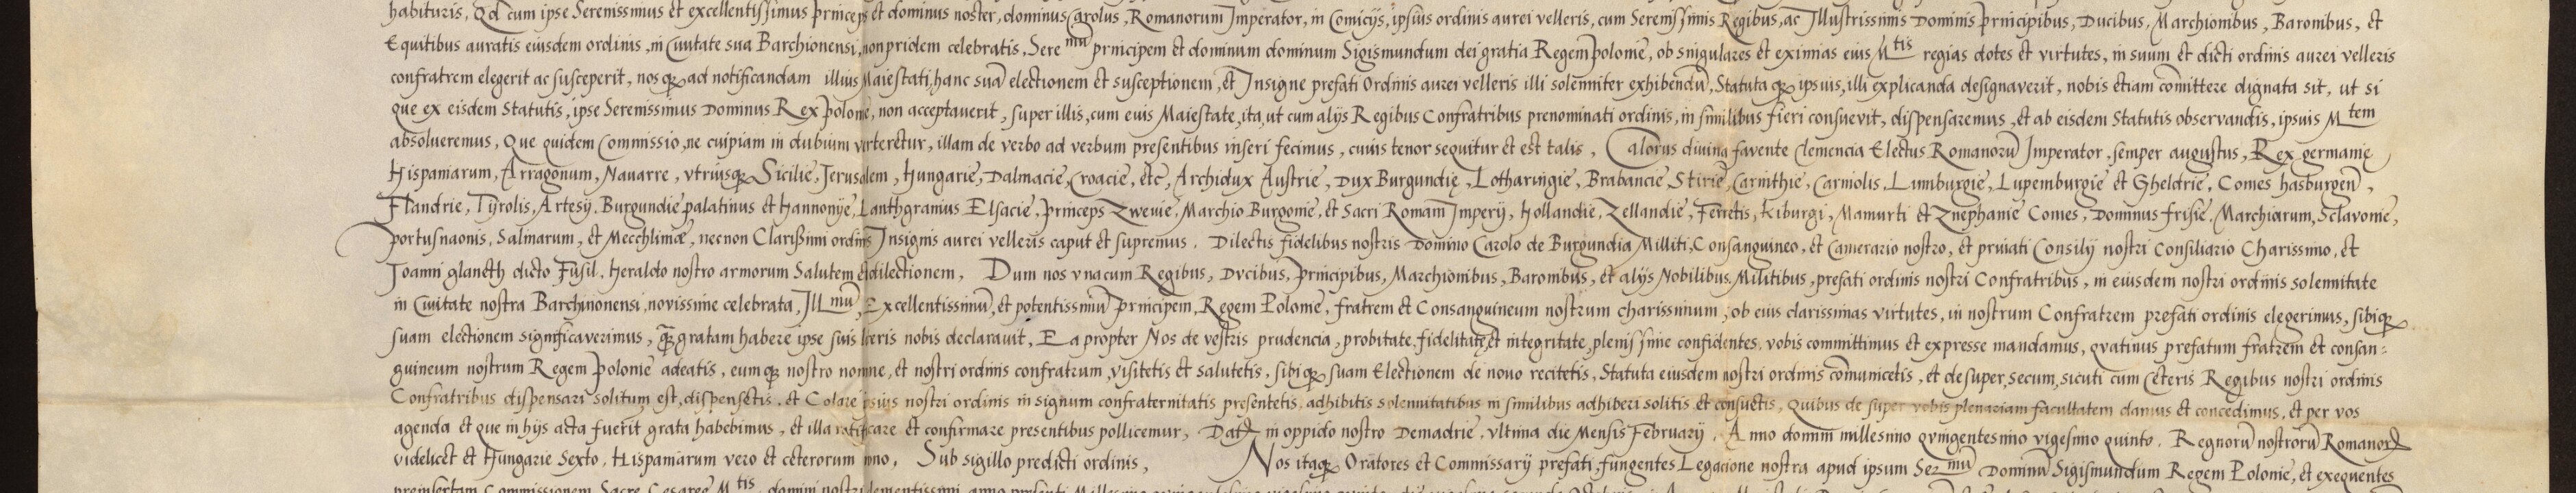 habituris, Qd cum ipse Serenissimus et excellentissimus princeps et dominus noster, dominus Carolus, Romanorum Imperator, in Comicijs, ipsius ordinis aurei velleris, cum Serenissimis Regibus, ac Illustrissimis Dominis principibus, Ducibus, Marchionibus, Baronibus, et
Equitibus auratis eiusdem ordinis, in Civitate sua Barchionensi, non pridem celebratis, Sere mū principem et dominum dominum Sigismundum dei gratia Regem polonie, ob singulares et eximias eius M tis regias dotes et virtutes, in suum et dicti ordinis aurei velleris
confratrem elegerit ac susceperit, nosq ad notificandam illius Maiestati, hanc suā electionem et susceptionem, et Insigne prefati Ordinis aurei velleris illi solenniter exhibendū, Statuta q ipsius, illi explicanda designaverit, nobis etiam cōmittere dignata sit, ut si
que ex eisdem Statutis, ipse Serenissimus Dominus Rex polonie, non acceptaverit, super illis, cum eius Maiestate, ita, ut cum alijs Regibus Confratribus prenominati ordinis, in similibus fieri consuevit, dispensaremus, et ab eisdem Statutis observandis, ipsius M tem
absolueremus, Que quidem Commissio, ne cuipiam in dubium verteretur, illam de verbo ad verbum presentibus inseri fecimus, cuius tenor sequitur et est talis, Calorus divina favente Clemencia Electus Romanorū Imperator, semper augustus, Rex germanie
Hispaniarum, Arragonum, Navarre, vtriusq Sicilie, Jerusalem, Hungarie, Dalmacie, Croacie, etc, Archidux Austrie, Dux Burgundie, Lotharingie, Brabancie, Stirie, Carinthie, Carniolis, Limburgie, Lupemburgie et Gheldrie, Comes hasburgeñ,
Flandrie, Tijrolis, Artesij, Burgundie palatinus et Hannonije, Lanthgravius Elsacie, princeps Zwevie, Marchio Burgonie, et Sacri Romani Imperij, Hollandie, Zellandie, Ferretis, Kiburgi, Mamurti et Znephanie Comes, Dominus frisie, Marchiarum, Sclavonie,
portusnaonis, Salmarum, et Mecchlimæ, necnon Clarißimi ordinis Insignis aurei velleris caput et supremus. Dilectis fidelibus nostris Domino Carolo de Burgundia Milliti, Consanguineo, et Camerario nostro, et privati Consilij nostri Consiliario Charissimo, et
Joanni glaneth dicto Fusil, Heraldo nostro armorum Salutem et dilectionem, Dum nos vnacum Regibus, Ducibus, principibus, Marchionibus, Baronibus, et alijs Nobilibus, Militibus, prefati ordinis nostri Confratribus, in eiusdem nostri ordinis solennitate
in Civitate nostra Barchinonensi, novissime celebrata, Ill mū, Excellentissimū, et potentissimū principem, Regem Polonie, fratrem et Consanguineum nostrum charissimum, ob eius clarissimas virtutes, in nostrum Confratrem prefati ordinis elegerimus, sibiq
suam electionem significaverimus, quā gratam habere ipse suis literis nobis declaravit, Ea propter Nos de vestris prudencia, probitate, fidelitate, et integritate, plenissime confidentes, vobis committimus et expresse mandamus, quatinus prefatum fratrem et consan=
guineum nostrum Regem polonie adeatis, eumq nostro nomine, et nostri ordinis confratrum, visitetis et salutetis, sibiq suam Electionem de novo recitetis, Statuta eiusdem nostri ordinis cōmunicetis, et desuper, secum, sicuti cum Ceteris Regibus nostri ordinis
Confratribus dispensari solitum est, dispensetis, et Colare ipsius nostri ordinis in signum confraternitatis presentetis, adhibitis solennitatibus in similibus adhiberi solitis et consuetis, Quibus de super vobis plenariam facultatem damus et concedimus, et per vos
agenda et que in hijs acta fuerit grata habebimus, et illa ratificare et confirmare presentibus pollicemur, Datæ in oppido nostro Demadrie, vltima die Mensis Februarij, Anno domini millesimo quingentesimo vigesimo quinto, Regnorū nostrorū Romanor
videlicet et Hungarie Sexto, Hispaniarum vero et ceterorum nono, Sub sigillo predicti ordinis, Nos itaq Oratores et Commissarij prefati, fungentes Legacione nostra apud ipsum Ser mū Dominū Sigismundum Regem Polonie, et exequentes
preinsertam Commissionem Sacre Cesaree M tis, domini nostri clementissimi